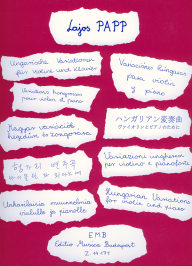 Lajos PAPP
Ungarische Variationen
für Violine und Klavier
Variaciónes húngaras
para violín
y piano
Variations hongroises
pour violon et piano
ハンガリアン変奏曲
ヴァイオリンとピアノのために
Magyar variációk
hegedűre és zongorára
헝가리 변주곡
Variazioni ungheresi
per violino e pianoforte
Hungarian Variations
for violin and piano
Unkarilaisia muunnelmia
viululle ja pianolle
EMB
Editio Musica Budapest